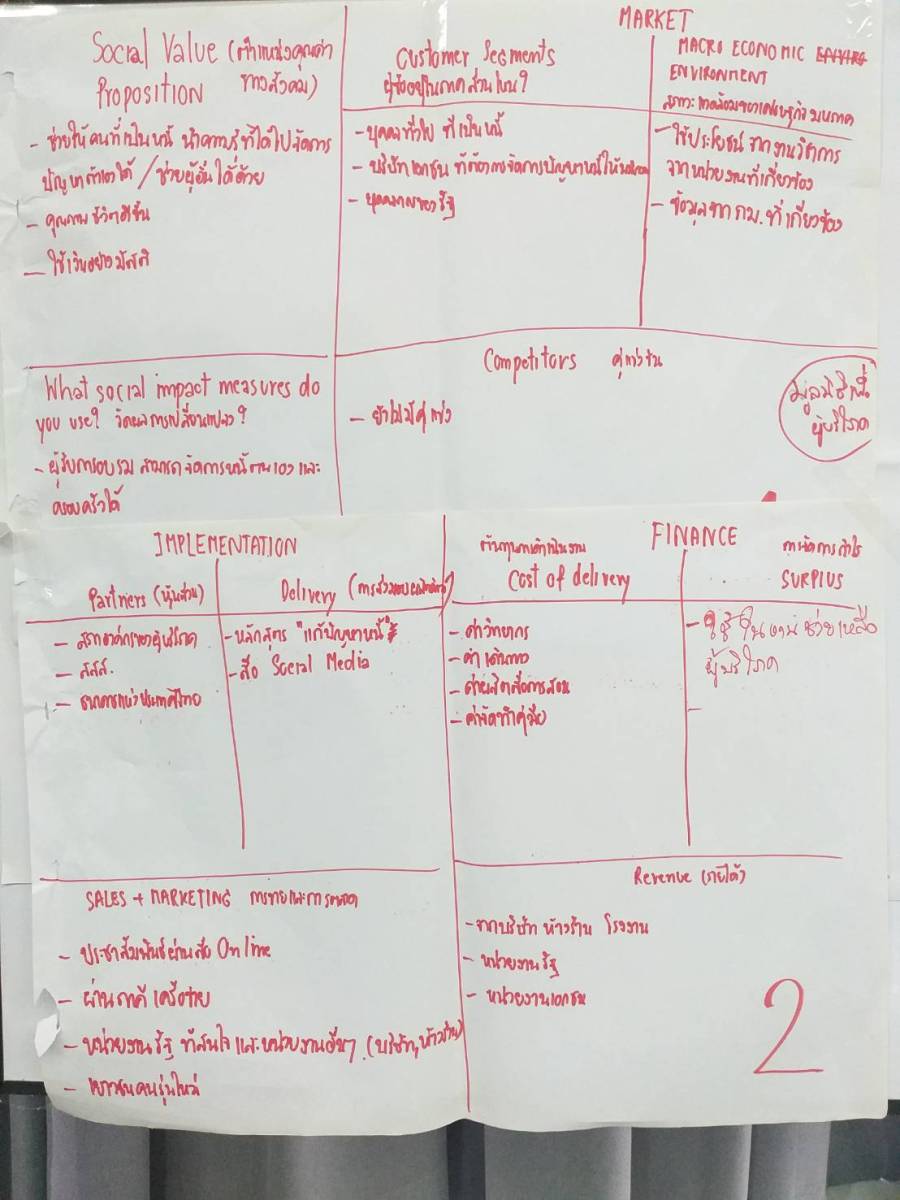 Social Value (ตำแหน่งคุณค่า
PROPOSITION ทางสังคม)
- ช่วยให้คนที่เป็นหนี้ นำความรู้ที่ได้ไปจัดการ
ปัญหาตัวเองได้ / ช่วยผู้อื่นได้ด้วย
- คุณภาพชีวิตดีขึ้น
- ใช้เงินอย่างมีสติ
What social impact measures do
you use? วัดผลการเปลี่ยนแปลง?
- ผู้รับการอบรม สามารถจัดการหนี้ตนเอง และ
ครอบครัวได้
MARKET
Customer Segments
- บุคคลทั่วไป ที่เป็นหนี้
- บริษัทเอกชน ที่ต้องการจัดการปัญหาหนี้ให้พนักงาน
- บุคลากรของรัฐ
MACRO ECONOMIC
ENVIRONMENT
สภาวะแวดล้อมของเศรษฐกิจมหภาค
- ใช้ประโยชน์จากงานวิชาการ
จากหน่วยงานที่เกี่ยวข้อง
- ข้อมูลจาก กม. ที่เกี่ยวข้อง
Competitors คู่แข่งขัน
- ยังไม่มีคู่แข่ง
มูลนิธิเพื่อ
ผู้บริโภค
IMPLEMENTATION
Partners (หุ้นส่วน)
- สภาองค์กรของผู้บริโภค
- สสส.
- ธนาคารแห่งประเทศไทย
Delivery
- หลักสูตร "แก้ปัญหาหนี้"
- สื่อ Social Media
FINANCE
ต้นทุนการดำเนินงาน
Cost of delivery
- ค่าวิทยากร
- ค่าเดินทาง
- ค่าผลิตสื่อการสอน
- ค่าจัดทำคู่มือ
การจัดการกำไร
SURPLUS
- ใช้ในงานช่วยเหลือ
ผู้บริโภค
-
SALES + MARKETING การขายและการตลาด
- ประชาสัมพันธ์ผ่านสื่อ Online
- ผ่านภาคีเครือข่าย
- หน่วยงานรัฐ ที่สนใจ และหน่วยงานอื่นๆ (บริษัท, ห้างร้าน)
- เยาวชนคนรุ่นใหม่
Revenue (รายได้)
- จากบริษัท ห้างร้าน โรงงาน
- หน่วยงานรัฐ
- หน่วยงานเอกชน
2